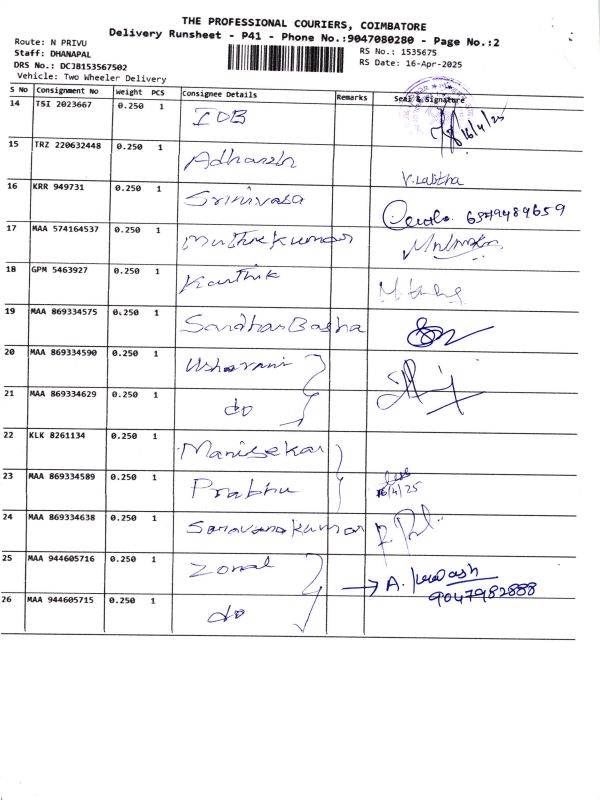 THE PROFESSIONAL COURIERS, COIMBATORE
Delivery Runsheet - P41 - Phone No.:9047080280 - Page No.:2
Route: N PRIVU
RS No.: 1535675
Staff: DHANAPAL
DRS No.: DCJ8153567502
RS Date: 16-Apr-2025
Vehicle: Two Wheeler Delivery
S No Consignment No Weight PCS Consignee Details Remarks Seal & Signature
14 TSI 2023667 0.250 1 IDB 16/4/25
15 TRZ 220632448 0.250 1 Adharsh V. Lalitha
16 KRR 949731 0.250 1 Srinivasa 6379489659
17 MAA 574164537 0.250 1 Muthukumar
18 GPM 5463927 0.250 1 Karthik
19 MAA 869334575 0.250 1 Sardhar Basha
20 MAA 869334590 0.250 1 Usharani
21 MAA 869334629 0.250 1 do
22 KLK 8261134 0.250 1 Manisekar
23 MAA 869334589 0.250 1 Prabhu 16/4/25
24 MAA 869334638 0.250 1 Saravanakumar
25 MAA 944605716 0.250 1 Zonal
A.
9047982888
26 MAA 944605715 0.250 1 do